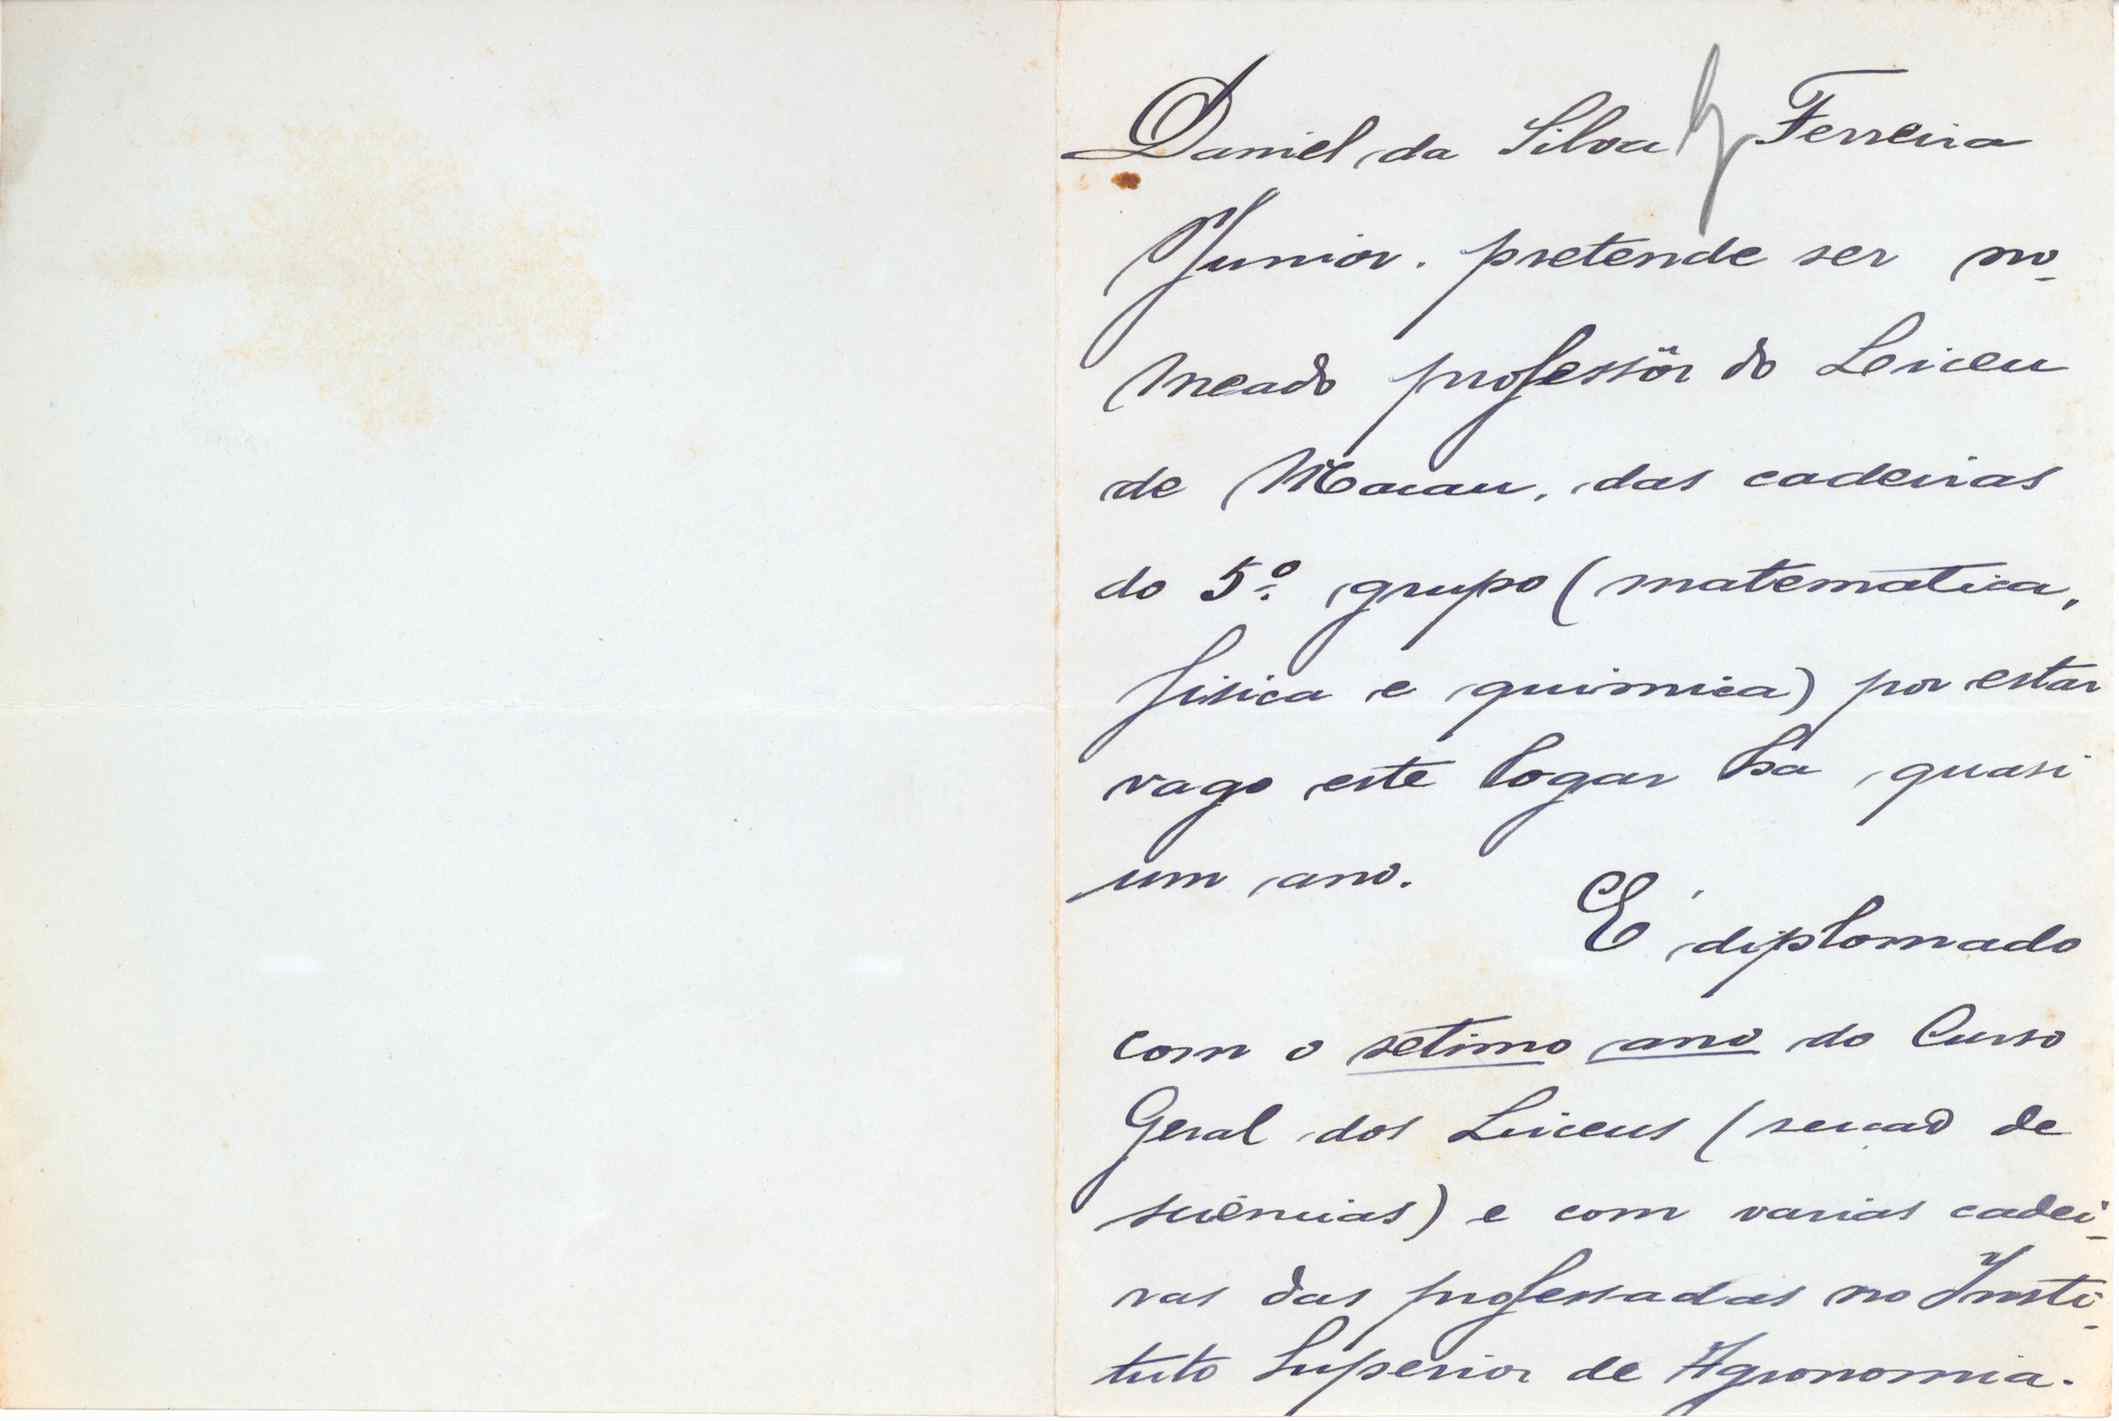 Daniel da Silva Ferreira
Junior. pretende ser no-
meado professôr do Leiceu
de Macau, das cadeiras
do 5º grupo (matematica,
fisica e quimica) por estar
vago este logar ha quasi
um ano.
É diplomado
com o setimo ano do Curso
Geral dos Liceus (secção de
sciências) e com varias cadei-
ras das professadas no Insti-
tuto Superior de Agronomia.